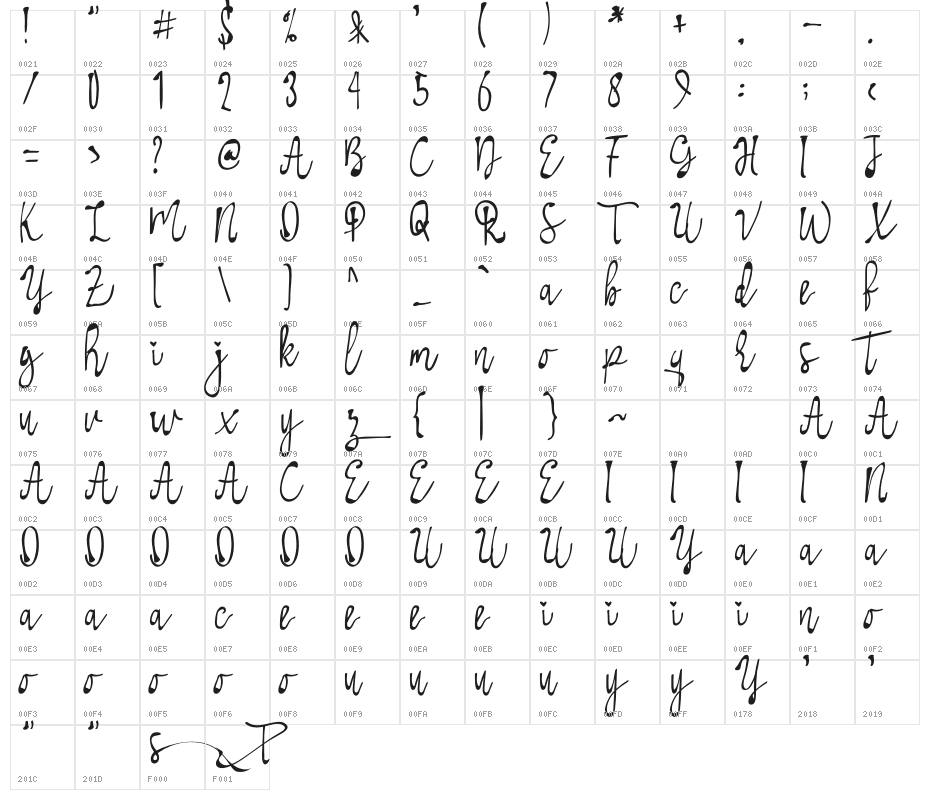 ! " # $ % & ' ( ) * + , - .
0021 0022 0023 0024 0025 0026 0027 0028 0029 002A 002B 002C 002D 002E
/ 0 1 2 3 4 5 6 7 8 9 : ; <
002F 0030 0031 0032 0033 0034 0035 0036 0037 0038 0039 003A 003B 003C
= > ? @ A B C D E F G H I J
003D 003E 003F 0040 0041 0042 0043 0044 0045 0046 0047 0048 0049 004A
K L M N O P Q R S T U V W X
004B 004C 004D 004E 004F 0050 0051 0052 0053 0054 0055 0056 0057 0058
Y Z [ \ ] ^ _ ` a b c d e f
0059 005A 005B 005C 005D 005E 005F 0060 0061 0062 0063 0064 0065 0066
g h i j k l m n o p q r s t
0067 0068 0069 006A 006B 006C 006D 006E 006F 0070 0071 0072 0073 0074
u v w x y z { | } ~ A A
0075 0076 0077 0078 0079 007A 007B 007C 007D 007E 00A0 00AD 00C0 00C1
A A A A C E E E E I I I I N
00C2 00C3 00C4 00C5 00C7 00C8 00C9 00CA 00CB 00CC 00CD 00CE 00CF 00D1
O O O O O O U U U U Y a a a
00D2 00D3 00D4 00D5 00D6 00D8 00D9 00DA 00DB 00DC 00DD 00E0 00E1 00E2
a a a c e e e e i i i i n o
00E3 00E4 00E5 00E7 00E8 00E9 00EA 00EB 00EC 00ED 00EE 00EF 00F1 00F2
o o o o o u u u u y y Y ' '
00F3 00F4 00F5 00F6 00F8 00F9 00FA 00FB 00FC 00FD 00FF 0178 2018 2019
" " s T
201C 201D F000 F001